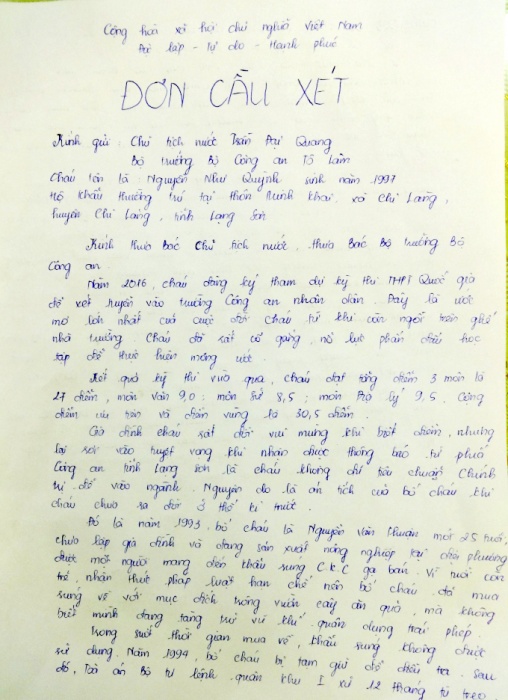 Cộng hoà xã hội chủ nghĩa Việt Nam
Độc lập - Tự do - Hạnh phúc
ĐƠN CẦU XÉT
Kính gửi : Chủ tịch nước Trần Đại Quang
Bộ trưởng Bộ Công an Tô Lâm
Cháu tên là : Nguyễn Như Quỳnh sinh năm 1997
Hộ khẩu thường trú tại thôn Minh Khai, xã Chi Lăng,
huyện Chi Lăng, tỉnh Lạng Sơn
Kính thưa Bác Chủ tịch nước, thưa Bác Bộ trưởng Bộ
Công an.
Năm 2016, cháu đăng ký tham dự kỳ thi THPT Quốc gia
để xét tuyển vào trường Công an nhân dân. Đây là ước
mơ lớn nhất của cuộc đời cháu từ khi còn ngồi trên ghế
nhà trường. Cháu đã rất cố gắng, nỗ lực phấn đấu học
tập để thực hiện mong ước.
Kết quả kỳ thi vừa qua, cháu đạt tổng điểm 3 môn là
27 điểm, môn văn 9,0; môn Sử 8,5; môn Địa lý 9,5. Cộng
điểm ưu tiên và điểm vùng là 30,5 điểm.
Gia đình cháu rất đỗi vui mừng khi biết điểm, nhưng
lại rơi vào tuyệt vọng khi nhận được thông báo từ phía
Công an tỉnh Lạng Sơn là cháu không đủ tiêu chuẩn Chính
trị để vào ngành. Nguyên do là án tích của bố cháu khi
cháu chưa ra đời ở thế kỉ trước.
Đó là năm 1993, bố cháu là Nguyễn Văn Thuận mới 25 tuổi,
chưa lập gia đình và đang sản xuất nông nghiệp tại địa phương
được một người mang đến khẩu súng CKC gạ bán. Vì tuổi còn
trẻ, nhận thức pháp luật hạn chế nên bố cháu đã mua
súng về với mục đích trông vườn cây ăn quả, mà không
biết mình đang tàng trữ vũ khí quân dụng trái phép.
Trong suốt thời gian mua về, khẩu súng không được
sử dụng. Năm 1994, bố cháu bị tạm giữ để điều tra. Sau
đó, Toà án Bộ tư lệnh quân khu I xử 12 tháng tù treo.